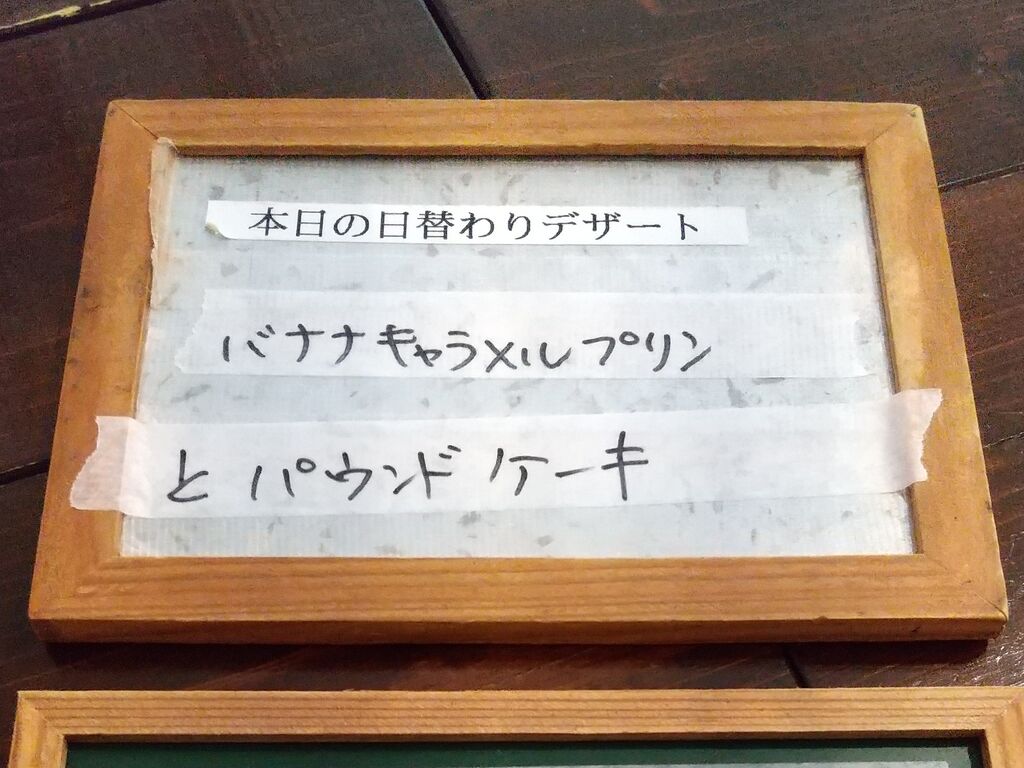 本日の日替わりデザート
バナナキャラメルプリン
とパウンドケーキ